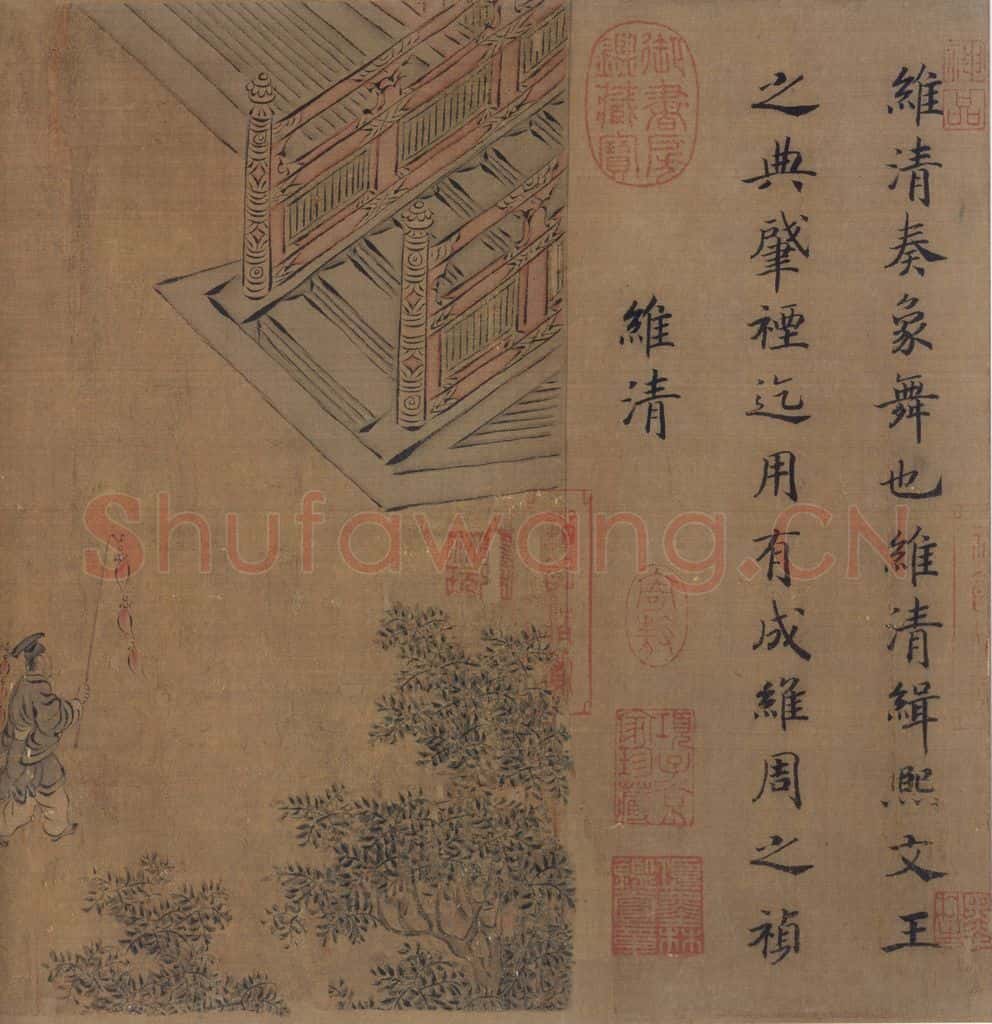 維清奏象舞也維清緝熙文王
之典肇禋迄用有成維周之禎
維清
神品
御書房
鑑藏寶
項子京
家珍藏
Shufawang.CN